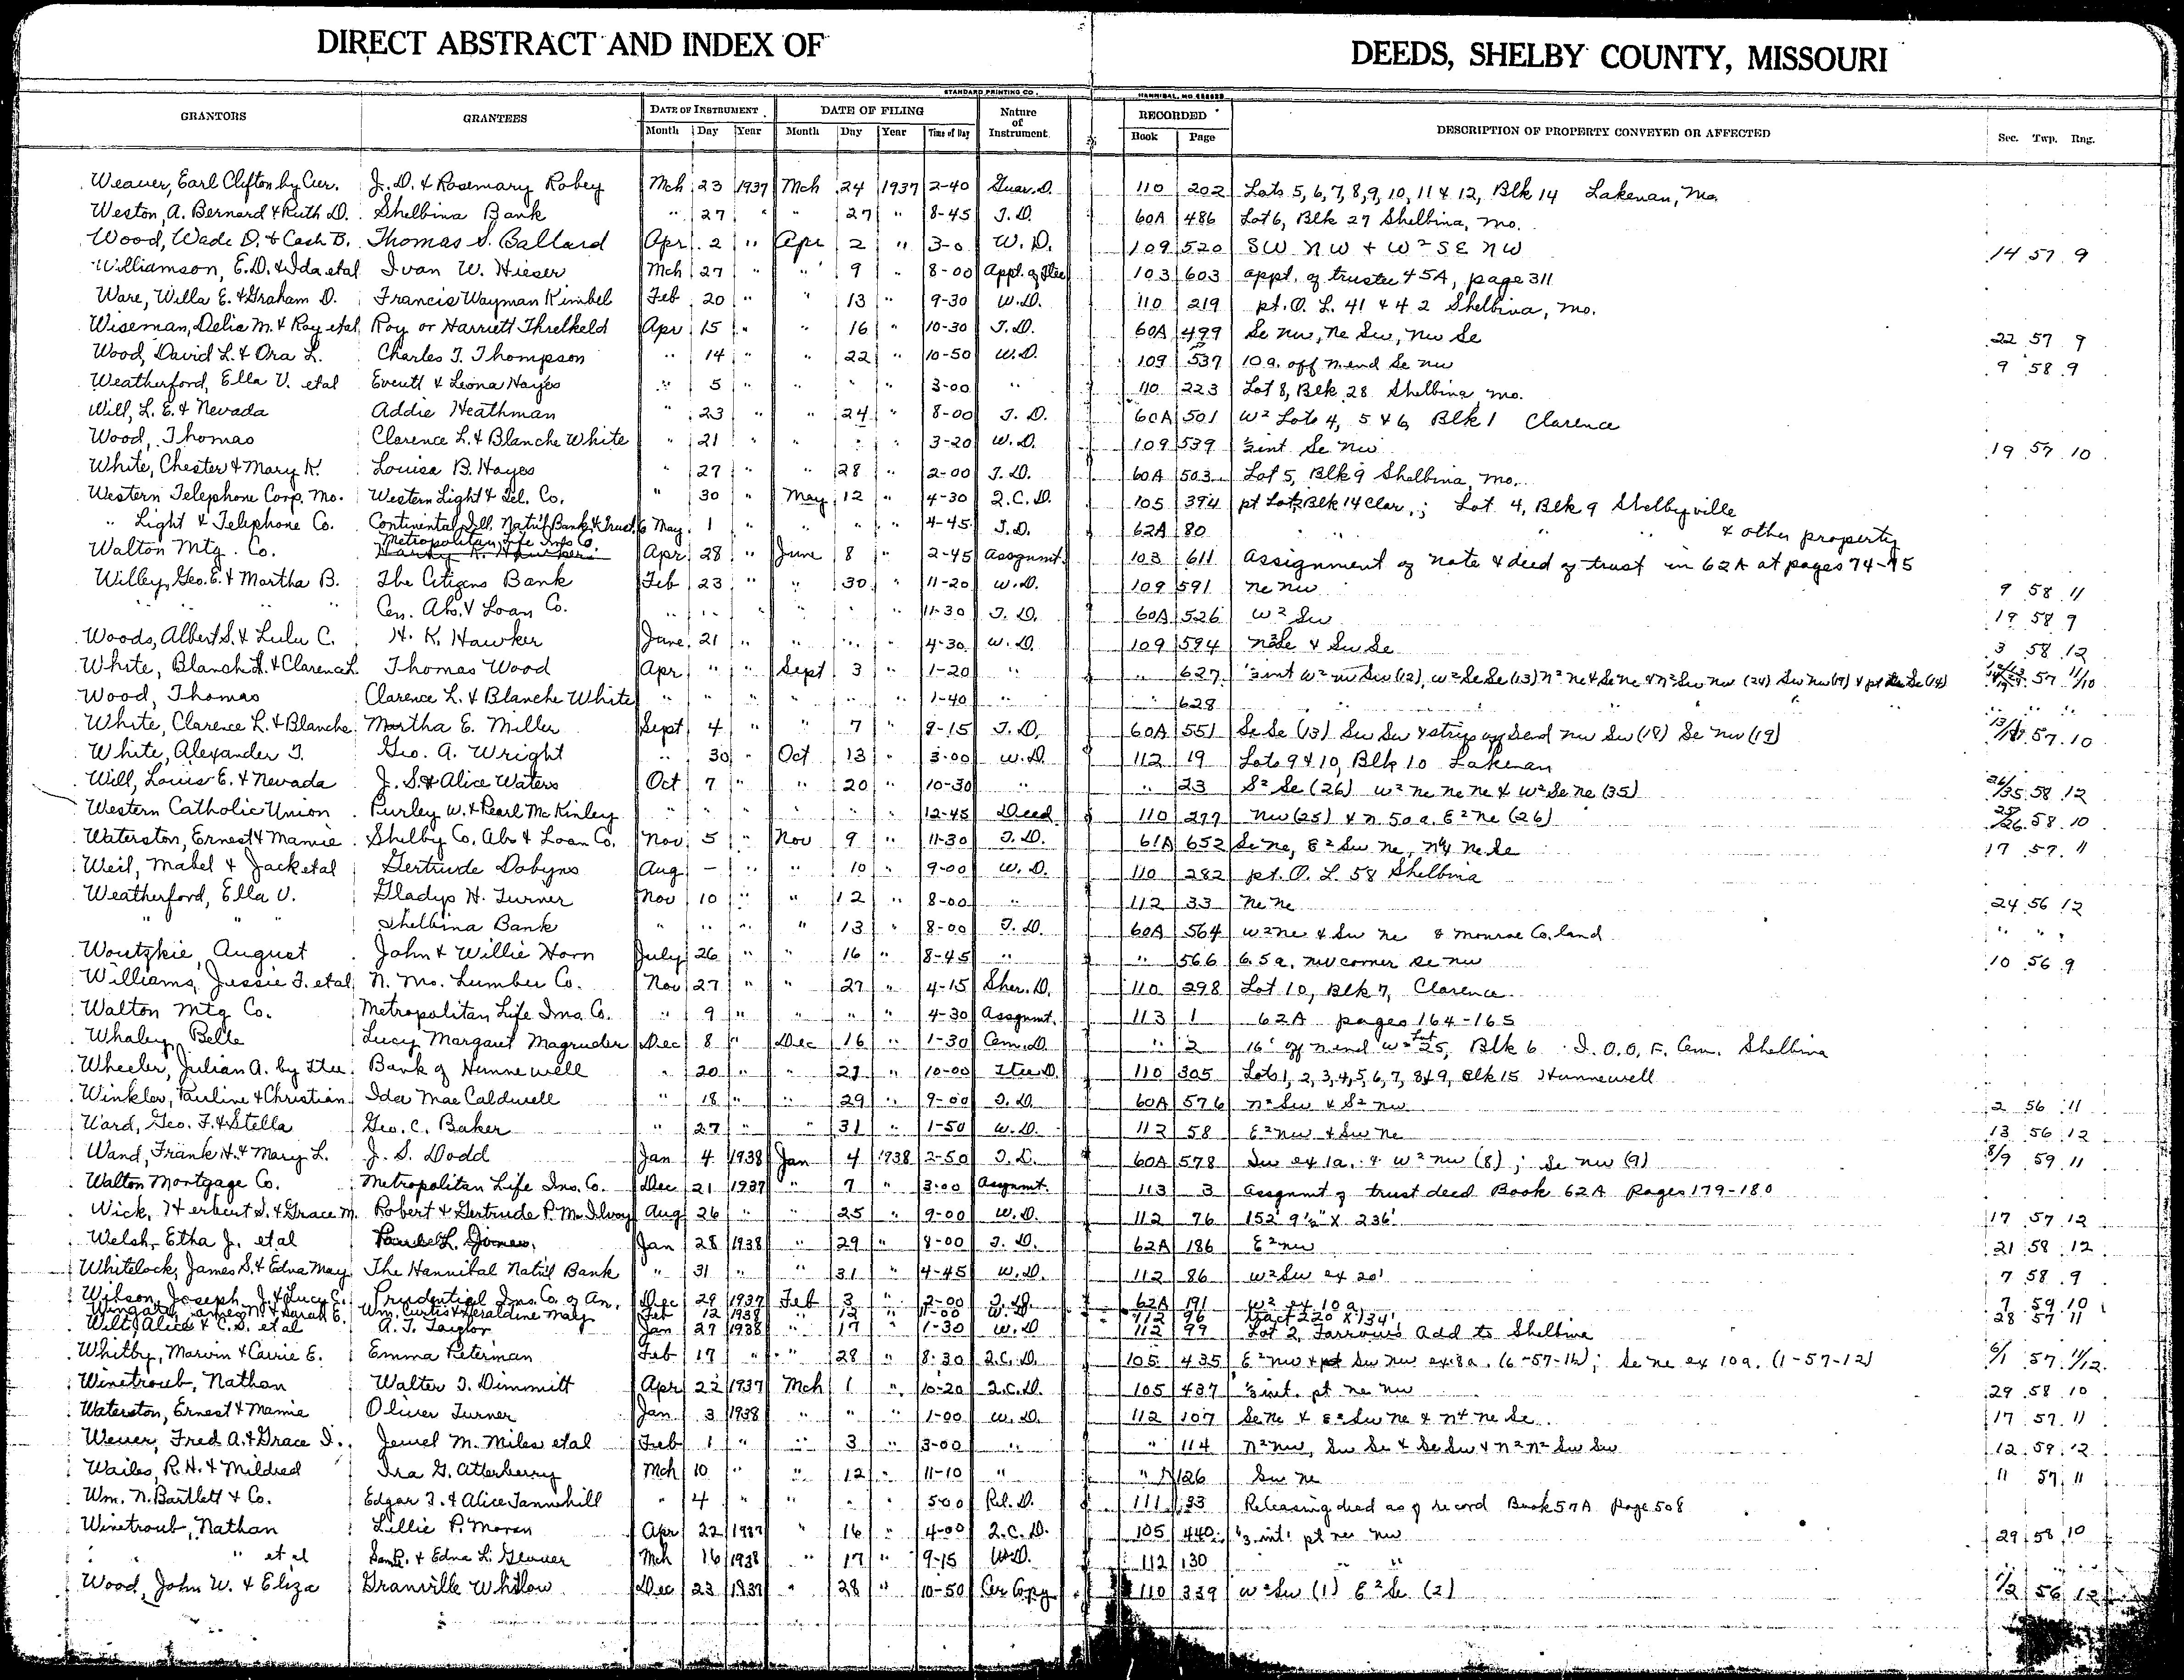 DIRECT ABSTRACT AND INDEX OF DEEDS, SHELBY COUNTY, MISSOURI
STANDARD PRINTING CO. HANNIBAL, MO.
GRANTORS GRANTEES DATE OF INSTRUMENT DATE OF FILING Nature of Instrument RECORDED DESCRIPTION OF PROPERTY CONVEYED OR AFFECTED Sec. Twp. Rng.
Month Day Year Month Day Year Time of Day Book Page
Weaver, Earl Clifton by Cur. J. D. & Rosemary Robey Mch 23 1937 Mch 24 1937 2-40 Guar. D. 110 202 Lots 5, 6, 7, 8, 9, 10, 11 & 12, Blk 14 Lakenan, Mo.
Weston, A. Bernard & Ruth D. Shelbina Bank " 27 " " 27 " 8-45 T. D. 60A 486 Lot 6, Blk 27 Shelbina, Mo.
Wood, Wade D. & Cash B. Thomas S. Ballard Apr. 2 " Apr 2 " 3-0 W. D. 109 520 SW NW & W² SE NW 14 57 9
Williamson, E. D. & Ida etal Ivan W. Hieser Mch 27 " " 9 " 8-00 Appt. of Tee 103 603 appt. of trustee 45A, page 311
Ware, Willa E. & Graham D. Francis Wayman Kimbel Feb 20 " " 13 " 9-30 W. D. 110 219 pt. O. L. 41 & 42 Shelbina, Mo.
Wiseman, Delia M. & Roy etal Roy or Harriett Threlkeld Apr 15 " " 16 " 10-30 T. D. 60A 499 Se nw, ne Sw, nw Se 22 57 9
Wood, David L. & Ora L. Charles T. Thompson " 14 " " 22 " 10-50 W. D. 109 537 10 a. off n end Se nw 9 58 9
Weatherford, Ella V. etal Everett & Leona Hayes " 5 " " " " 3-00 " 110 223 Lot 8, Blk 28 Shelbina, Mo.
Will, L. E. & Nevada Addie Heathman " 23 " " 24 " 8-00 T. D. 60A 501 W² Lots 4, 5 & 6, Blk 1 Clarence
Wood, Thomas Clarence L. & Blanche White " 21 " " " " 3-20 W. D. 109 539 int Se nw 19 57 10
White, Chester & Mary K. Louisa B. Hayes " 27 " " 28 " 2-00 T. D. 60A 503 Lot 5, Blk 9 Shelbina, Mo.
Western Telephone Corp. Mo. Western Light & Tel. Co. " 30 " May 12 " 4-30 Q. C. D. 105 394 pt Lot Blk 14 Clar.; Lot 4, Blk 9 Shelbyville
" Light & Telephone Co. Continental Ill. Nat'l Bank & Trust Co May 1 " " " " 4-45 T. D. 62A 80 " " " & other property
Walton Mtg. Co. Metropolitan Life Ins Co. Apr 28 " June 8 " 2-45 Assgnmt. 103 611 Assignment of note & deed of trust in 62A at pages 74-75
Willey, Geo. E. & Martha B. The Citizens Bank Feb 23 " " 30 " 11-20 W. D. 109 591 ne nw 9 58 11
" " " Cen. Abs. & Loan Co. " " " " " " 11-30 T. D. 60A 526 W² Sw 19 58 9
Woods, Albert S. & Lulu C. H. K. Hawker June 21 " " " " 4-30 W. D. 109 594 n²Se & Sw Se 3 58 12
White, Blanch H. & Clarence L. Thomas Wood Apr " " Sept 3 " 1-20 " " 627 int W² nw Sw (12), W² Se Se (13) n² ne & Se ne & n² Sw nw (24) Sw nw (19) & pt Se (14) 57 11/10
Wood, Thomas Clarence L. & Blanche White " " " " " " 1-40 " " 628 " " " " "
White, Clarence L. & Blanche Martha E. Miller Sept 4 " " 7 " 9-15 T. D. 60A 551 Se Se (13) Sw Sw & strip off S end nw Sw (18) Se nw (19) 57 10
White, Alexander T. Geo. A. Wright " 30 " Oct 13 " 3-00 W. D. 112 19 Lots 9 & 10, Blk 10 Lakenan
Will, Louis E. & Nevada J. S. & Alice Waters Oct 7 " " 20 " 10-30 " " 23 S² Se (26) W² ne ne ne & W² Se ne (35) 26/35 58 12
Western Catholic Union Purley W. & Pearl McKinley " " " " " " 12-45 Deed 110 277 NW (25) & n 50 a. E² Ne (26) 25/26 58 10
Waterston, Ernest & Mamie Shelby Co. Abs & Loan Co. Nov 5 " Nov 9 " 11-30 T. D. 61A 652 Se ne, E² Sw ne, n¼ ne Se 17 57 11
Weil, Mabel & Jack etal Gertrude Dobyns Aug — " " 10 " 9-00 W. D. 110 282 pt. O. L. 58 Shelbina
Weatherford, Ella V. Gladys H. Turner Nov 10 " " 12 " 8-00 " 112 33 ne ne 24 56 12
" " " Shelbina Bank " " " " 13 " 8-00 T. D. 60A 564 W² ne & Sw ne & Monroe Co. land " " "
Woutzkie, August John & Willie Horn July 26 " " 16 " 8-45 " " 566 6.5 a. nw corner Se nw 10 56 9
Williams, Jessie F. etal N. Mo. Lumber Co. Nov 27 " " 27 " 4-15 Sher. D. 110 298 Lot 10, Blk 7, Clarence
Walton Mtg Co. Metropolitan Life Ins. Co. " 9 " " " " 4-30 Assgnmt. 113 1 62A pages 164-165
Whaley, Belle Lucy Margaret Magruder Dec 8 " Dec 16 " 1-30 Cem. D. " 2 16' off n end W² Lot 25, Blk 6 I. O. O. F. Cem. Shelbina
Wheeler, Julian A. by Ttee Bank of Hunnewell " 20 " " 21 " 10-00 Ttee D. 110 305 Lots 1, 2, 3, 4, 5, 6, 7, 8 & 9, Blk 15 Hunnewell
Winkler, Pauline & Christian Ida Mae Caldwell " 18 " " 29 " 9-00 T. D. 60A 576 n² Sw & S² nw 2 56 11
Ward, Geo. F. & Stella Geo. C. Baker " 27 " " 31 " 1-50 W. D. 112 58 E² nw & Sw ne 13 56 12
Wand, Frank H. & Mary L. J. S. Dodd Jan 4 1938 Jan 4 1938 2-50 T. D. 60A 578 Sw ex 1a. & W² nw (8); Se nw (9) 8/9 59 11
Walton Mortgage Co. Metropolitan Life Ins. Co. Dec 21 1937 " 7 " 3-00 Assgnmt. 113 3 Assgnmt of trust deed Book 62A Pages 179-180
Wick, Herbert S. & Grace M. Robert & Gertrude P. McIlvoy Aug 26 " " 25 " 9-00 W. D. 112 76 152' 9½" X 236' 17 57 12
Welsh, Etha J. etal Jan 28 1938 " 29 " 8-00 T. D. 62A 186 E² nw 21 58 12
Whitelock, James S. & Edna May The Hannibal Nat'l Bank " 31 " " 31 " 4-45 W. D. 112 86 W² Sw ex 20' 7 58 9
Wilson, Joseph J. & Lucy E. Prudential Ins. Co. of Am. Dec 29 1937 Feb 3 " 2-00 T. D. 62A 191 W² ex 10 a. 7 59 10
Wingate, James N. & Sarah E. Wm. Curtis & Geraldine May Feb 12 1938 " 12 " 1-00 W. D. 112 96 tract 220' X 134' 28 57 11
Wilt, Alice & C. S. etal A. T. Taylor Jan 27 1938 " 17 " 1-30 W. D. 112 99 Lot 2, Farrows Add to Shelbina
Whitby, Marvin & Carrie E. Emma Peterman Feb 17 " " 28 " 8-30 Q. C. D. 105 435 E² nw & pt Sw nw ex 8a. (6-57-11); Se ne ex 10a. (1-57-12) 6/1 57 11/12
Winetroub, Nathan Walter T. Dimmitt Apr 22 1937 Mch 1 " 10-20 Q. C. D. 105 437 ⅓ int. pt ne nw 29 58 10
Waterston, Ernest & Mamie Oliver Turner Jan 3 1938 " " " 1-00 W. D. 112 107 Se ne & E² Sw ne & n¼ ne Se 17 57 11
Wever, Fred A. & Grace I. Jewel M. Miles etal Feb 1 " " 3 " 3-00 " " 114 n² nw, Sw Se & Se Sw & n² n² Sw Sw 12 59 12
Wailes, R. H. & Mildred Ira G. Atterberry Mch 10 " " 12 " 11-10 " " 126 Sw ne 11 57 11
Wm. N. Bartlett & Co. Edgar T. & Alice Tannehill " 4 " " " " 5-00 Rel. D. 111 33 Releasing deed as of record Book 57A Page 508
Winetroub, Nathan Lillie P. Moran Apr 22 1937 " 16 " 4-00 Q. C. D. 105 440 ⅓ int. pt ne nw 29 58 10
" " et al Sam R. & Edna L. Glover Mch 16 1938 " 17 " 9-15 W. D. 112 130 " "
Wood, John W. & Eliza Granville Whitlow Dec 23 1937 " 28 " 10-50 Cer Copy 110 339 W² Sw (1) E² Se (2) 1/2 56 12